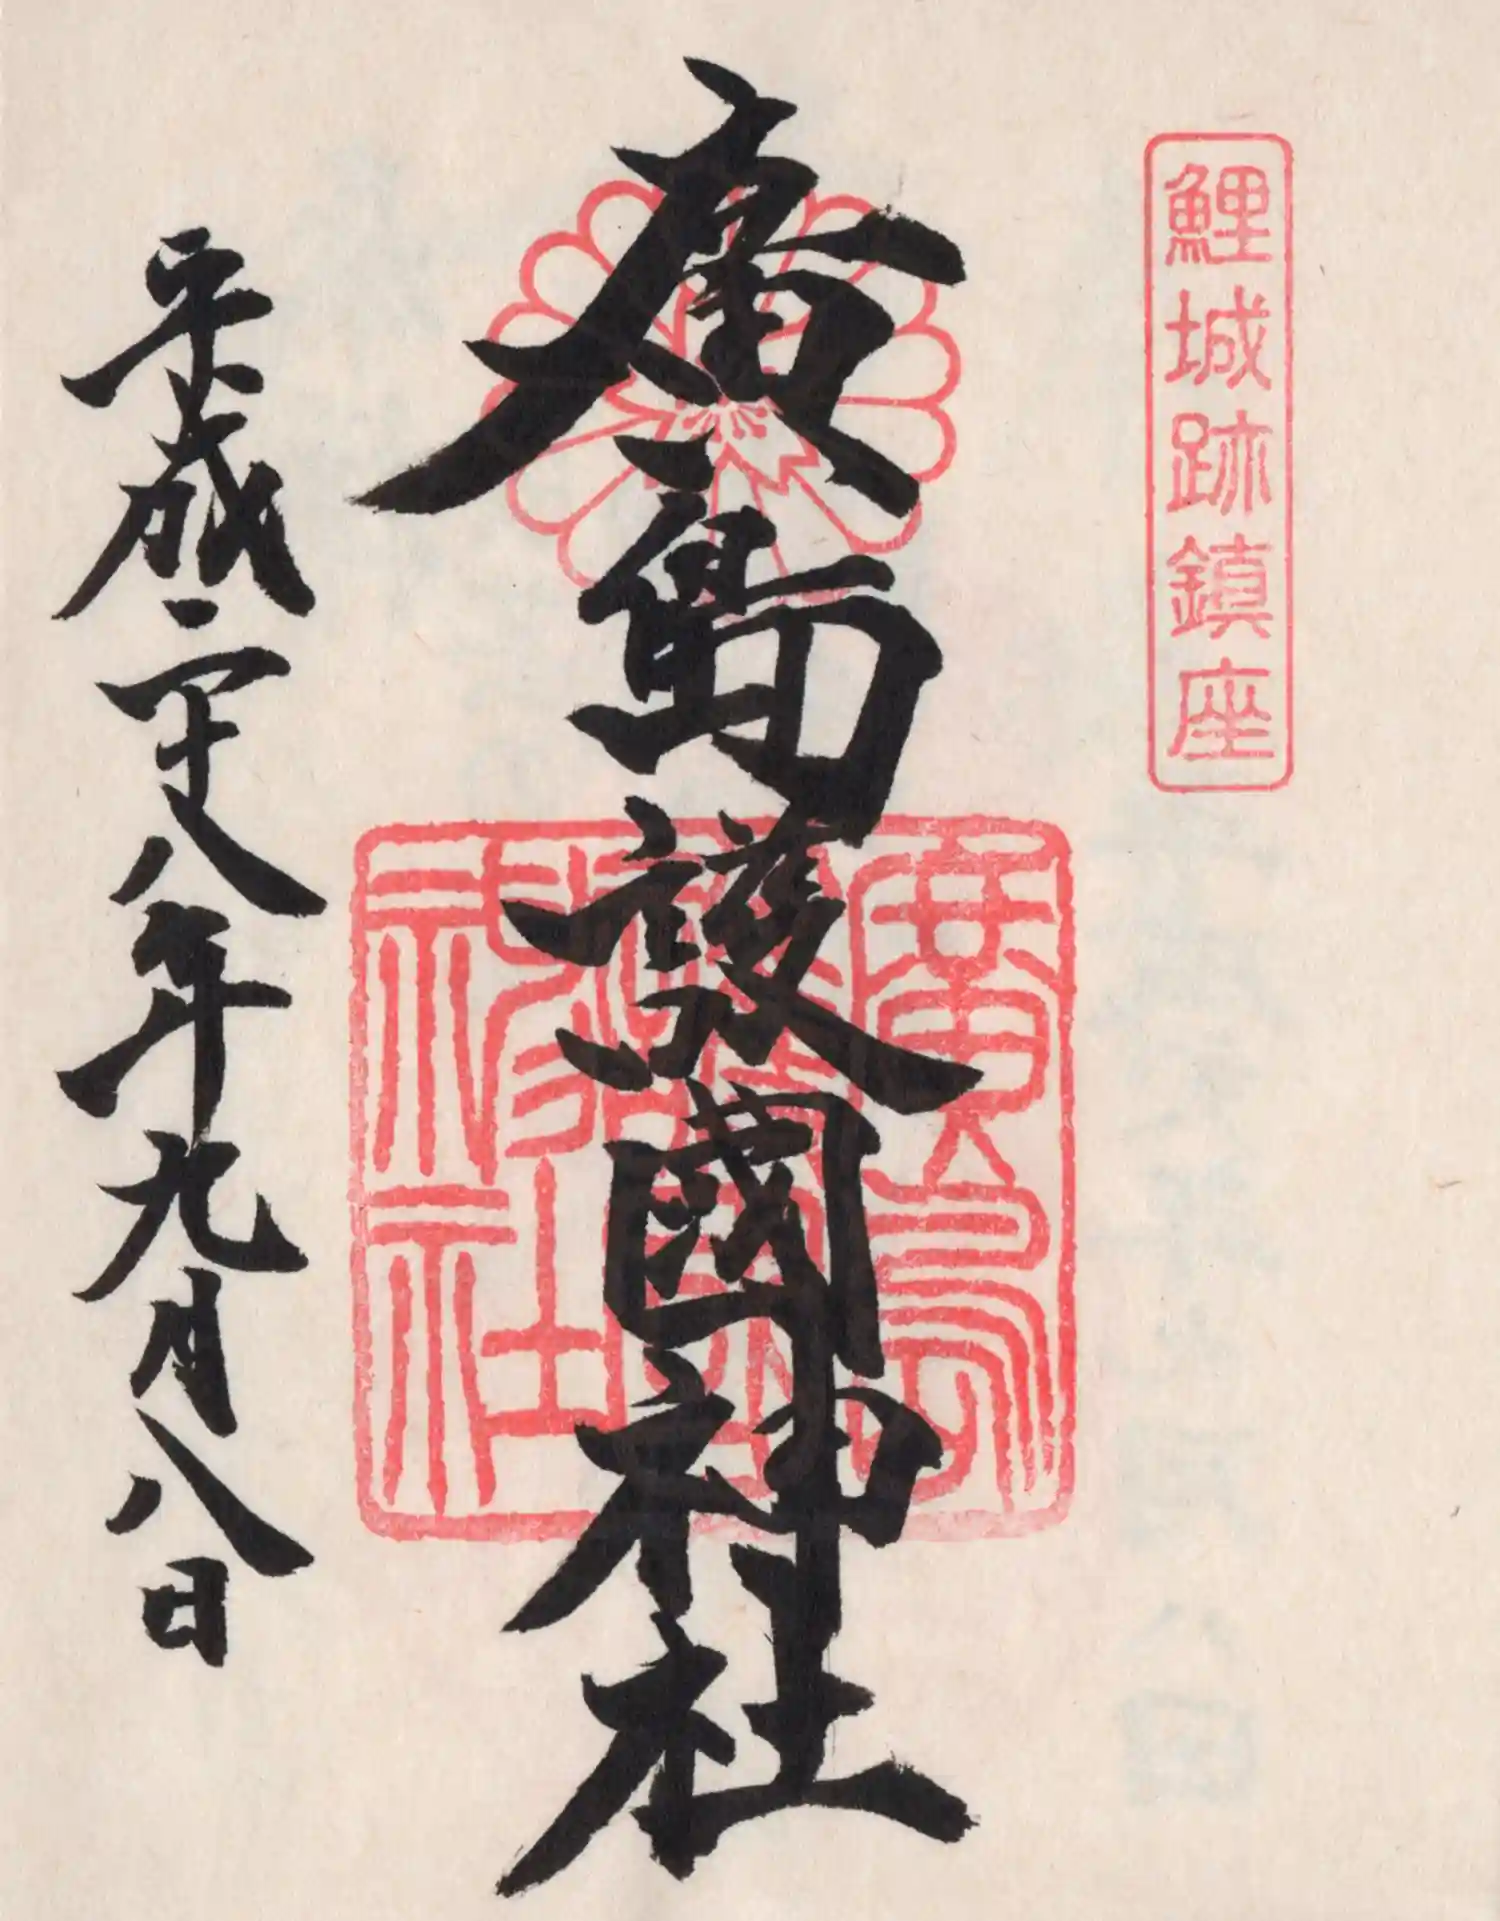 鯉城跡鎮座
廣島護國神社
平成二十八年九月八日
廣島
護國
神社